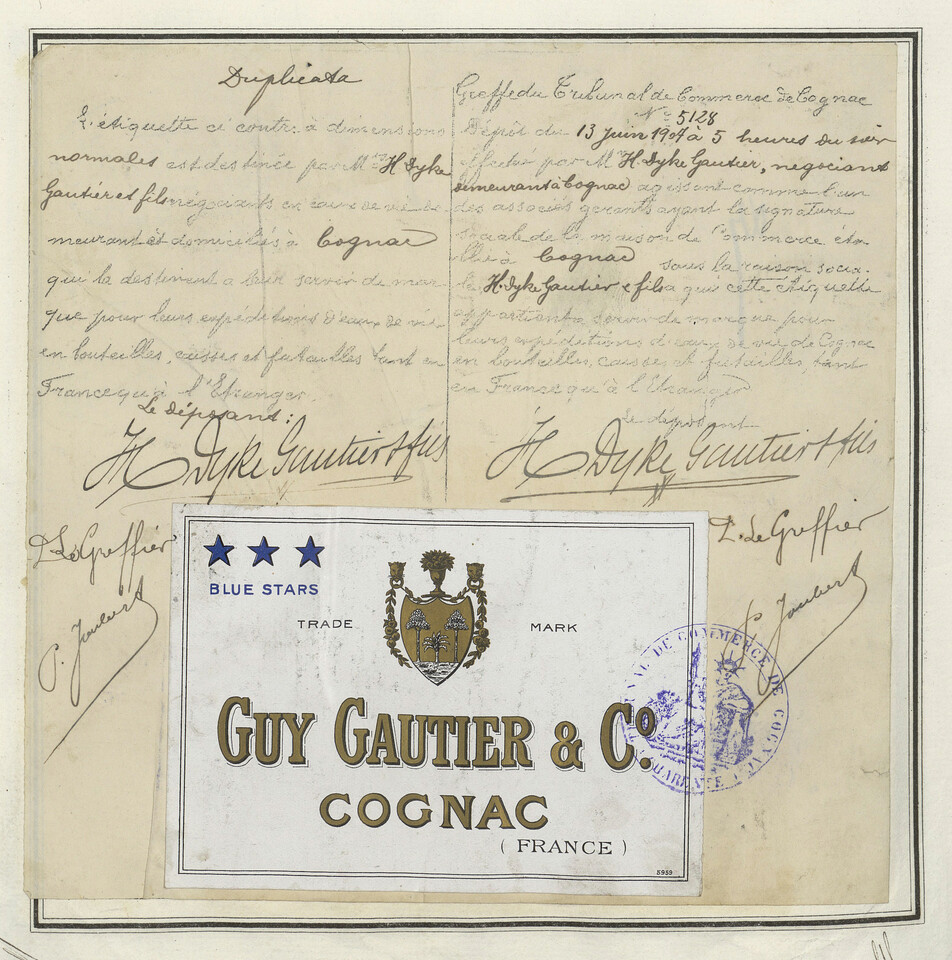 Duplicata
L'étiquette ci contre à dimensions
normales est destinée par MM rs H. Dyke
Gautier et fils négociants en eaux de vie de
meurant et domiciliés à Cognac
qui la destinent à leur servir de mar
que pour leurs expéditions d'eaux de vie
en bouteilles, caisses et futailles tant en
France qu'à l'Etranger.
Le déposant:
H Dyke Gautier & fils
L. Le Greffier
P. Joubert
Greffe du Tribunal de Commerce de Cognac
N° 5128
Dépôt du 13 juin 1904 à 5 heures du soir
effectué par M rs H. Dyke Gautier, négociant
demeurant à Cognac agissant comme l'un
des associés gérants ayant la signature
sociale de la maison de Commerce éta
blie à Cognac sous la raison socia
le H. Dyke Gautier & fils a qui cette étiquette
appartient à servir de marque pour
leurs expéditions d'eaux de vie de Cognac
en bouteilles, caisses et futailles, tant
en France qu'à l'Etranger
Le déposant
H Dyke Gautier & fils
L. Le Greffier
P. Joubert
BLUE STARS
TRADE MARK
GUY GAUTIER & Cº.
COGNAC
( FRANCE )
5959
TRIBUNAL DE COMMERCE DE COGNAC
CHARENTE